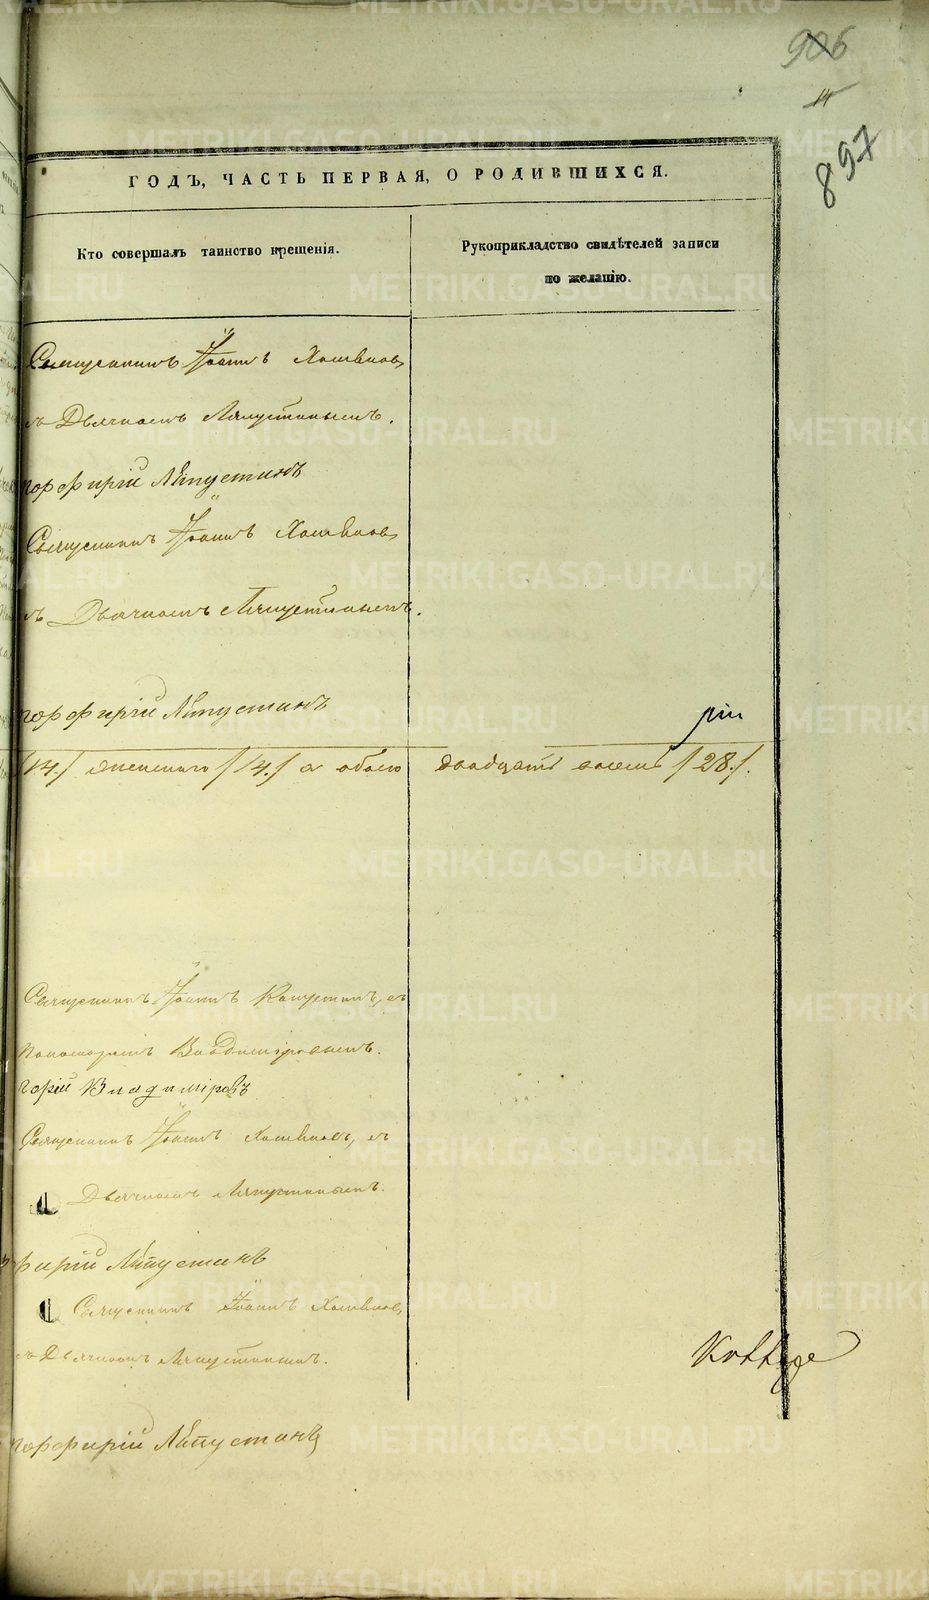 906
14
897
ГОДЪ, ЧАСТЬ ПЕРВАЯ, О РОДИВШИХСЯ.
Кто совершалъ таинство крещенія.
Рукоприкладство свидѣтелей записи
по желанію.
Священникъ Іоаннъ
съ Дьячкомъ Ляпустинымъ.
порфирій Ляпустинъ
Священникъ Іоаннъ
съ Дьячкомъ Ляпустинымъ.
порфирій Ляпустинъ
/14./ женскаго /14./ а обоего двадцать восемь /28./.
Священникъ Іоаннъ Капустин, съ
Пономаремъ Владиміровымъ.
горій Владиміровъ
Священникъ Іоаннъ съ
Дьячкомъ Ляпустинымъ.
фирій Ляпустинъ
Священникъ Іоаннъ
съ Дьячкомъ Ляпустинымъ.
порфирій Ляпустинъ
METRIKI.GASO-URAL.RU